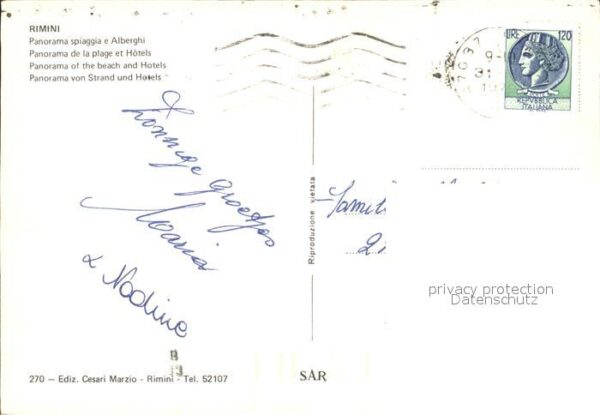 RIMINI
Panorama spiaggia e Alberghi
Panorama de la plage et Hôtels
Panorama of the beach and Hotels
Panorama von Strand und Hotels
LIRE 120
REPVBBLICA
ITALIANA
Zonnige groetjes
Maria
& Nadine
Riproduzione vietata
privacy protection
Datenschutz
270 — Ediz. Cesari Marzio - Rimini - Tel. 52107
SAR